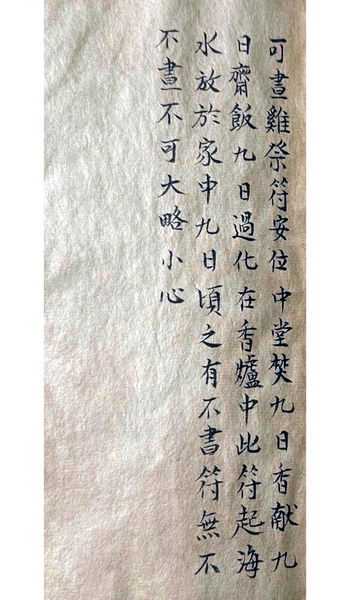 可晝雞祭符安位中堂焚九日香献九
日齋飯九日過化在香爐中此符起海
水放於家中九日頃之有不書符無不
不晝不可大略小心